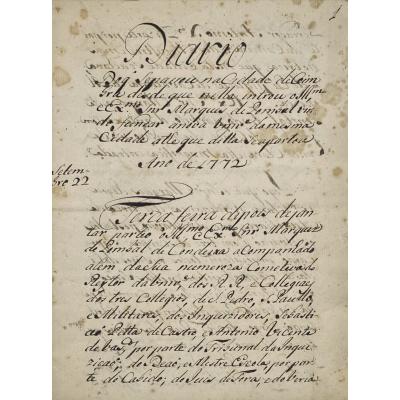 Diario
Do q̃ se passou na Cidade de Coim
bra desde que nella entrou o Illmo
e Exmo Snr Marquez de Pombal
Cidade athe que della se apartou
Ano de 1772
Setem
bro 22
Terca feira depois de jan
tar partio o Illmo e Exmo Snr Marquez
de Pombal de Condeixa acompanhado
alem da sua numeroza Cometiva do
Reytor da Univ.e dos R.R. e Collegiaes
dos tres Collegios, de S. Pedro, S. Paullo,
e Militares; dos Inquizidores, Sebasti
ão Pitta de Castro, e Antonio Vicente
por parte do Tribunal da Inqui
zicaõ; do Deaõ, e Mestre Escola, por par
te do Cabido; de